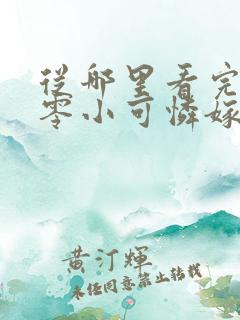 從那里看完
零小可憐嫁
黄汀輝
未经同意禁止转载